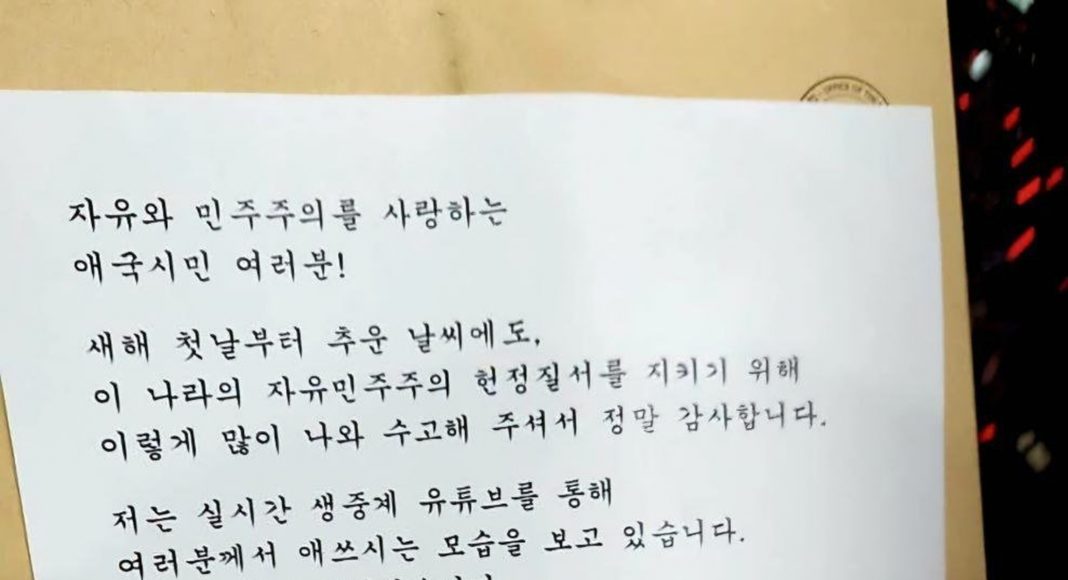 자유와 민주주의를 사랑하는
애국시민 여러분!
새해 첫날부터 추운 날씨에도,
이 나라의 자유민주주의 헌정질서를 지키기 위해
이렇게 많이 나와 수고해 주셔서 정말 감사합니다.
저는 실시간 생중계 유튜브를 통해
여러분께서 애쓰시는 모습을 보고 있습니다.